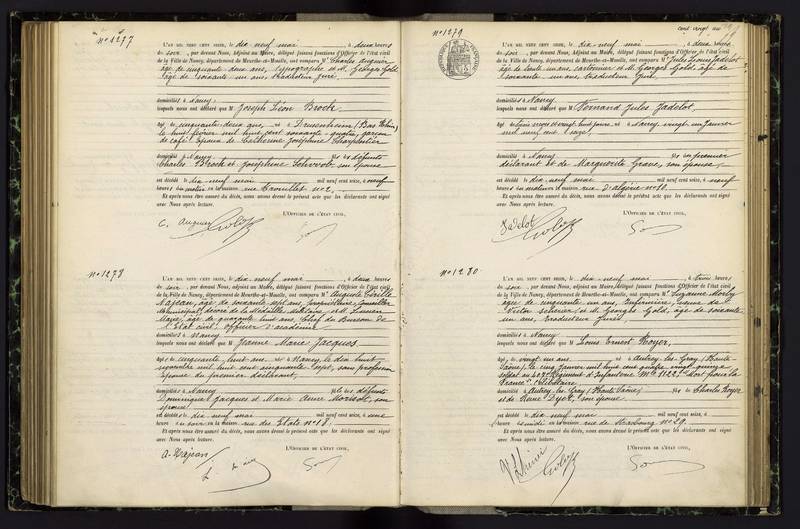 N° 1277
L'AN MIL NEUF CENT SEIZE, le dix neuf mai, à deux heures
du soir, par devant Nous, adjoint au Maire, délégué faisant fonctions d'Officier de l'état civil
de la Ville de Nancy, département de Meurthe-et-Moselle, ont comparu M. Charles Auguer
âgé de cinquante deux ans, typographe et M. Georges Gold
âgé de soixante un ans, traducteur juré
domiciliés à Nancy
lesquels nous ont déclaré que M. Joseph Léon Broch
âgé de cinquante deux ans, né à Drusenheim (Bas Rhin)
le huit février mil huit cent soixante quatre, garçon
de café époux de Catherine Joséphine Charpentier
domicilié à Nancy fils des défunts
Charles Broch et Joséphine son épouse
est décédé le dix neuf mai mil neuf cent seize, à neuf
heures du matin en sa maison rue n° 2
Et après nous être assuré du décès, nous avons dressé le présent acte que les déclarants ont signé
avec Nous après lecture.
L'OFFICIER DE L'ÉTAT CIVIL,
C. Auguer
N° 1278
L'AN MIL NEUF CENT SEIZE, le dix neuf mai, à deux heures
du soir, par devant Nous, adjoint au Maire, délégué faisant fonctions d'Officier de l'état civil
de la Ville de Nancy, département de Meurthe-et-Moselle, ont comparu M. Auguste
Najean, âgé de soixante sept ans, propriétaire, Conseiller
Municipal, décoré de la Médaille Militaire, et M. Lucien
âgé de quarante huit ans, Chef de Bureau de
l'Etat civil, officier d'académie
domiciliés à Nancy
lesquels nous ont déclaré que M. Jeanne Marie Jacques
âgée de cinquante huit ans, née à Nancy, le dix huit
novembre mil huit cent cinquante sept, sans profession
épouse du premier déclarant
domiciliée à Nancy fille des défunts
Dominique Jacques et Marie Anne son
épouse
est décédée le dix neuf mai mil neuf cent seize, à une
heure du soir en sa maison rue des Etats n° 18
Et après nous être assuré du décès, nous avons dressé le présent acte que les déclarants ont signé
avec Nous après lecture.
L'OFFICIER DE L'ÉTAT CIVIL,
A. Najean
cent vingt un
N° 1279
L'AN MIL NEUF CENT SEIZE, le dix neuf mai, à deux heures
du soir, par devant Nous, adjoint au Maire, délégué faisant fonctions d'Officier de l'état civil
de la Ville de Nancy, département de Meurthe-et-Moselle, ont comparu M. Jules Jadelot
âgé de trente un ans, et M. Georges Gold, âgé de
soixante un ans, traducteur juré
domiciliés à Nancy
lesquels nous ont déclaré que M. Fernand Jules Jadelot
âgé de trois mois et vingt huit jours, né à Nancy vingt un janvier
mil neuf cent seize
domicilié à Nancy fils du premier
déclarant et de Marguerite son épouse
est décédé le dix neuf mai mil neuf cent seize, à neuf
heures du matin en sa maison, rue d'Algérie n° 10
Et après nous être assuré du décès, nous avons dressé le présent acte que les déclarants ont signé
avec Nous après lecture.
L'OFFICIER DE L'ÉTAT CIVIL,
Jadelot
N° 1280
L'AN MIL NEUF CENT SEIZE, le dix neuf mai, à trois heures
du soir, par devant Nous, adjoint au Maire, délégué faisant fonctions d'Officier de l'état civil
de la Ville de Nancy, département de Meurthe-et-Moselle, ont comparu M. Suzanne
âgée de cinquante un ans, infirmière, épouse de
Victor et M. Georges Gold, âgé de soixante
un ans, traducteur juré
domiciliés à Nancy
lesquels nous ont déclaré que M. Louis Ernest Royer,
âgé de vingt un ans né à Autrey-les-Gray (Haute
Saône) le cinq janvier mil huit cent quatre vingt quinze
soldat au Régiment d'Infanterie Mort pour la
France, célibataire
domicilié à Autrey les Gray (Haute Saône) fils de Charles Royer
et de son épouse
est décédé le dix neuf mai mil neuf cent seize, à
heure du midi en sa maison rue de Strasbourg n° 29
Et après nous être assuré du décès, nous avons dressé le présent acte que les déclarants ont signé
avec Nous après lecture.
L'OFFICIER DE L'ÉTAT CIVIL,